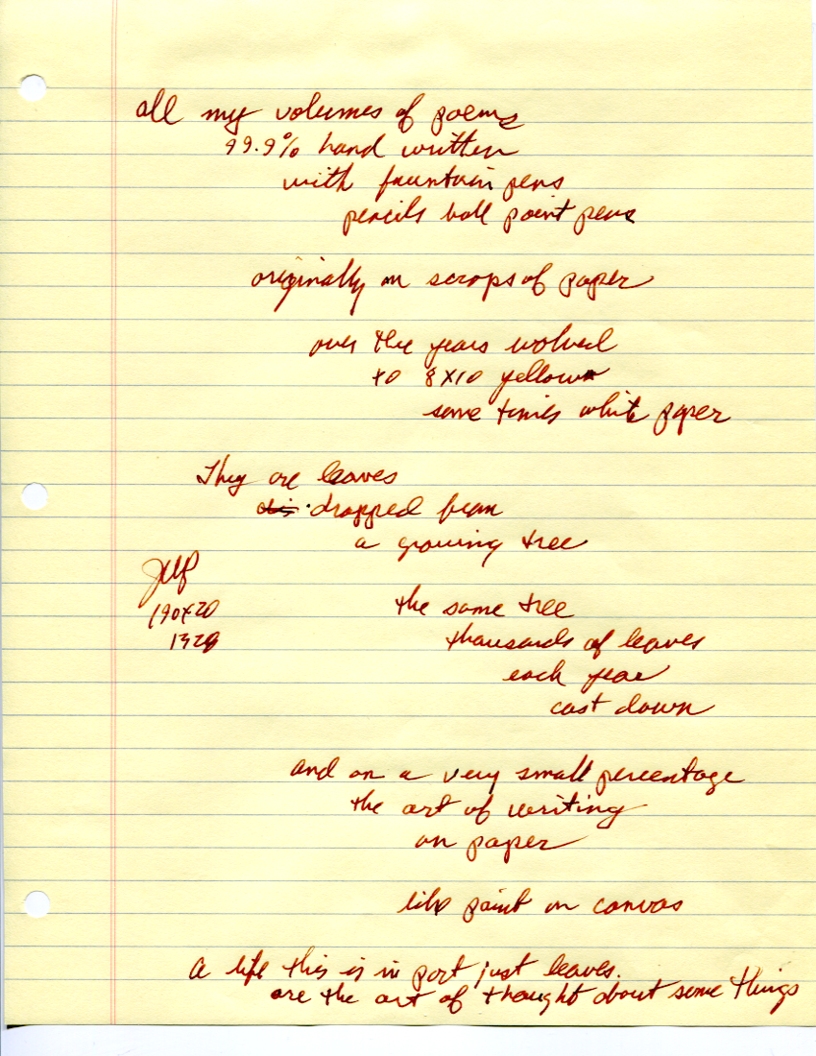 all my volumes of poems
99.9% hand written
with fountain pens
pencils ball point pens
originally on scraps of paper
over the years
to 8x10 yellow
some times white paper
They are leaves
dropped from
a growing tree
the same tree
thousands of leaves
each year
cast down
and on a very small percentage
the art of writing
on paper
like paint on canvas
a life this is in part just leaves.
are the art of thought about some things